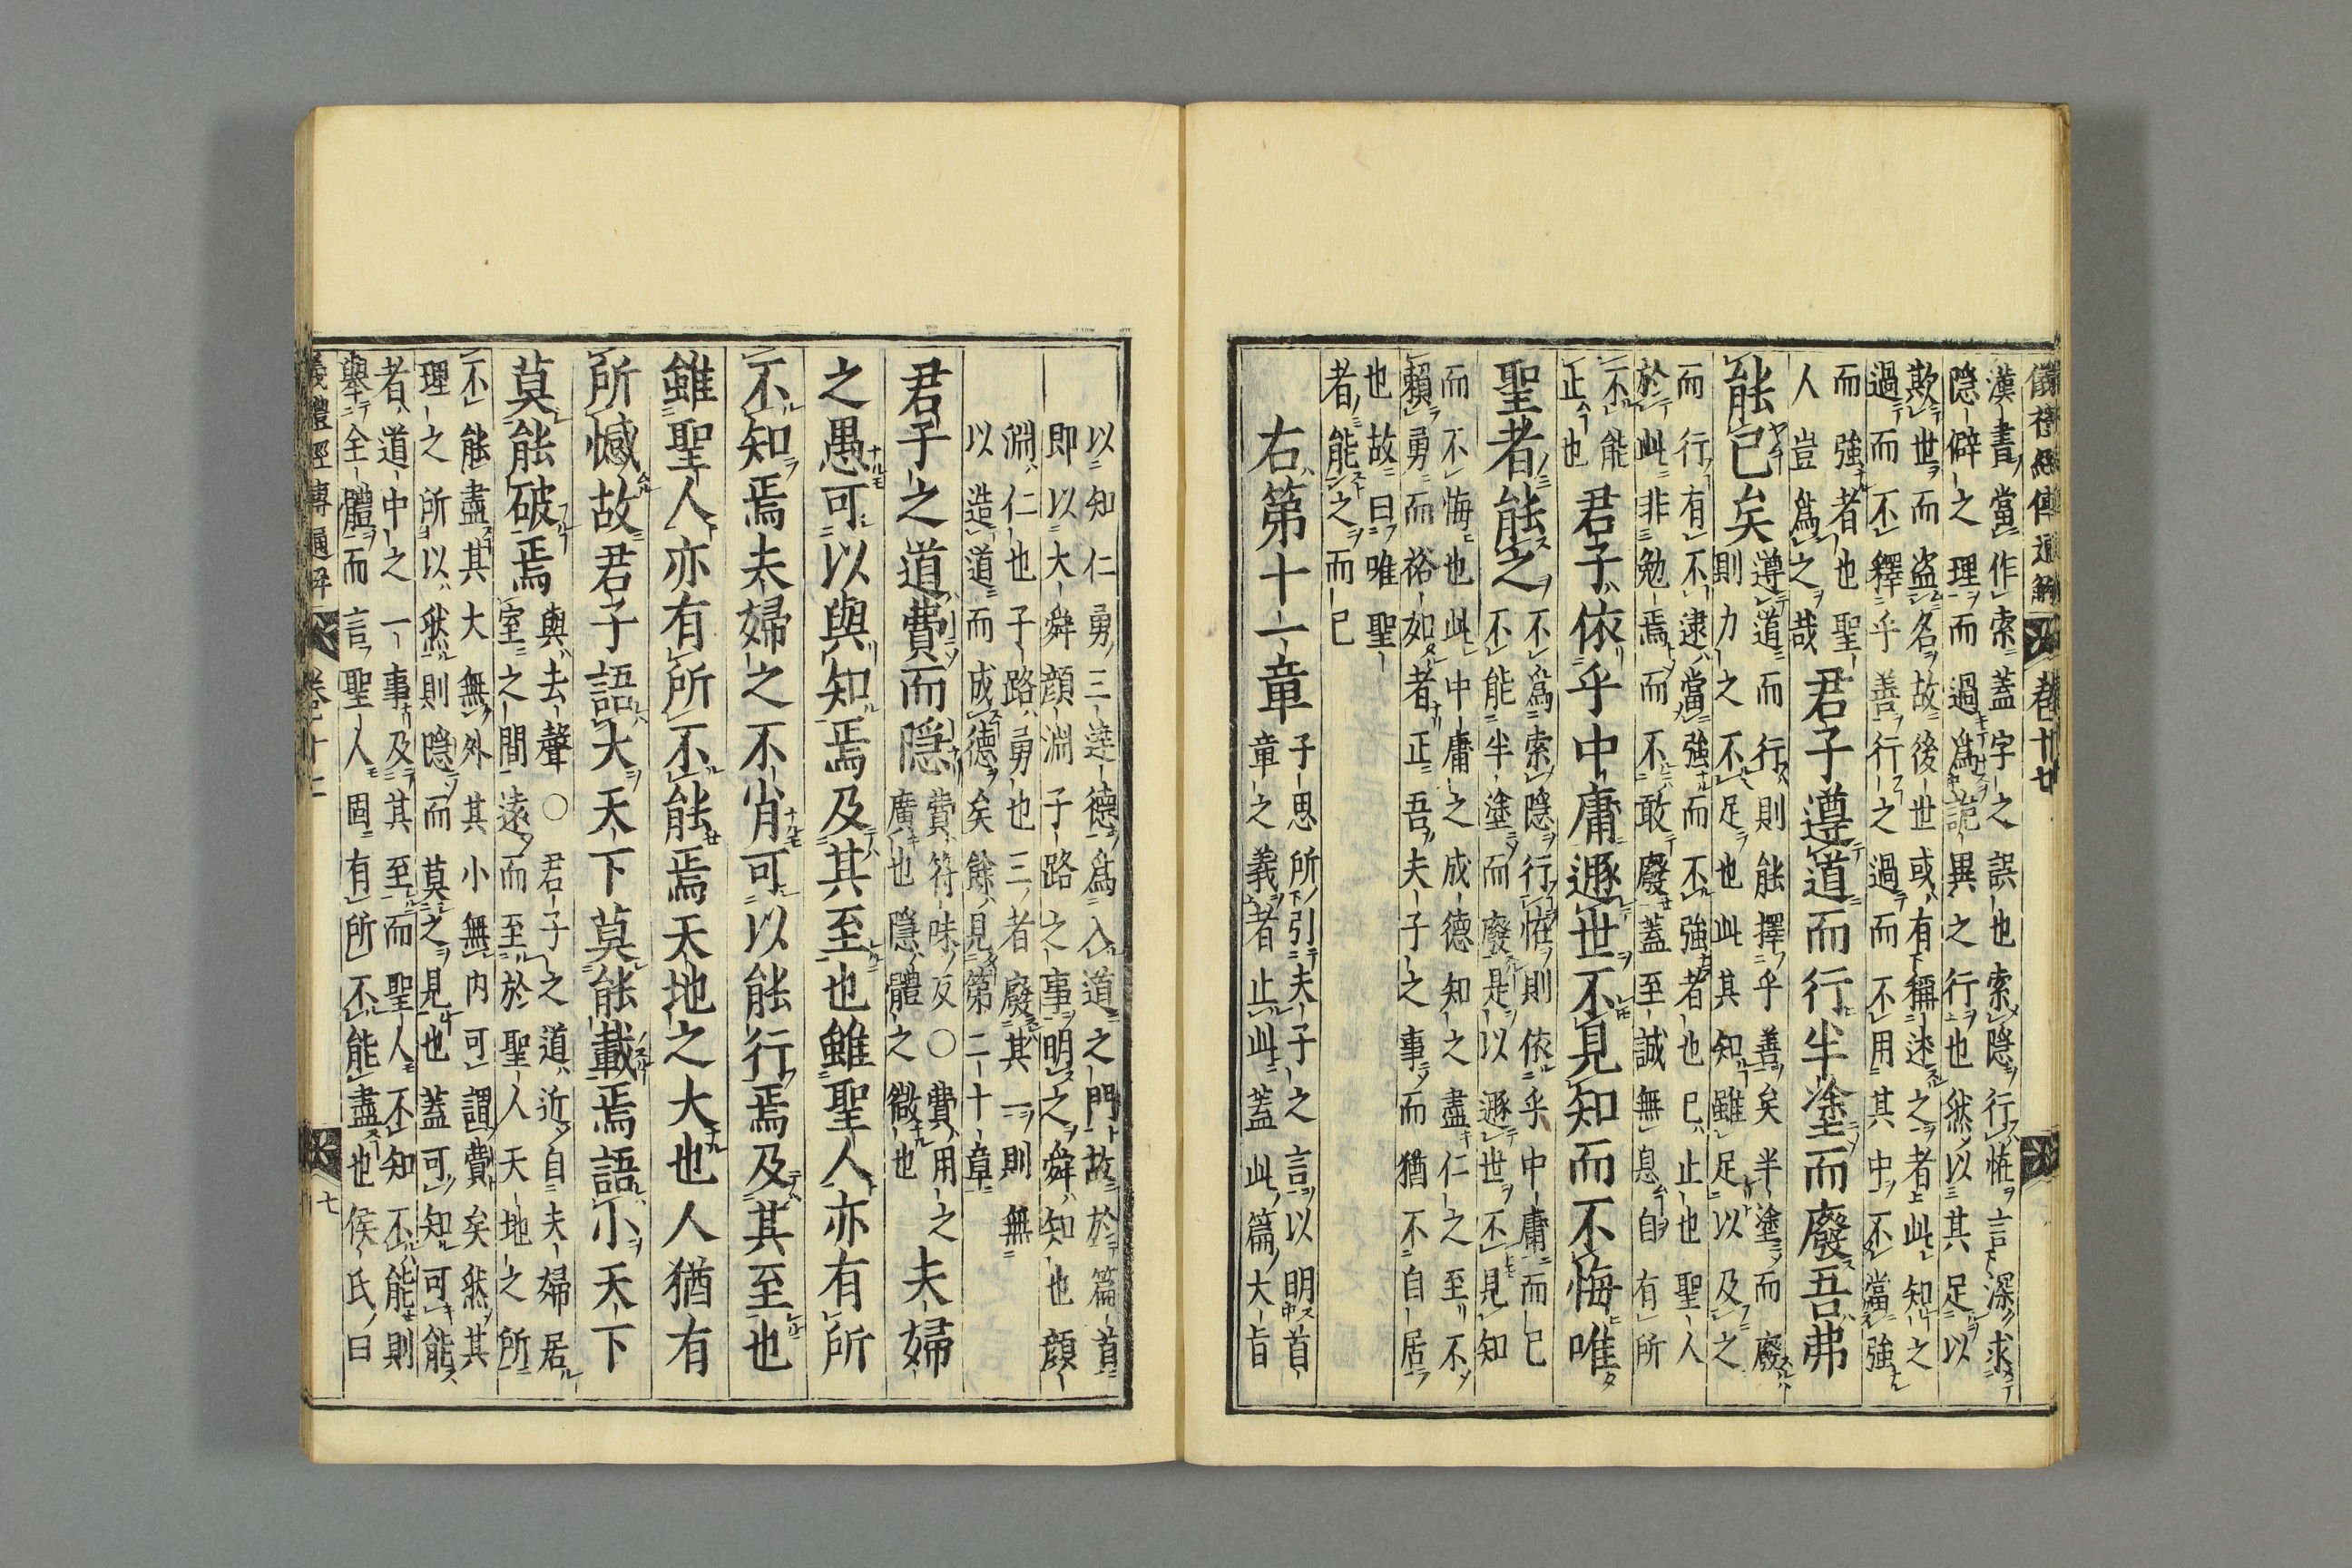 儀禮經傳通解 卷十七
漢書當作索蓋字之誤也索隱行恠言深求
隱僻之理而過爲詭異之行也然以其足以
欺世而盗名故後世或有稱述之者此知之
過而不釋乎善行之過而不用其中不當強
而強者也聖
人豈爲之哉
君子遵道而行半塗而廢吾弗
能已矣
遵道而行則能擇乎善矣半塗而廢
則力之不足也此其知雖足以及之
而行有不逮當強而不強者也已止也聖人
於此非勉焉而不敢廢蓋至誠無息自有所
不能
正也
君子依乎中庸遯世不見知而不悔唯
聖者能之
不爲索隱行恠則依乎中庸而已
不能半塗而廢是以遯世不見知
而不悔也此中庸之成德知之盡仁之至不
賴勇而裕如者正吾夫子之事而猶不自居
也故曰唯聖
者能之而已
右第十一章
子思所引夫子之言以明首
章之義者止此蓋此篇大旨
以知仁勇三達德爲入道之門故於篇首
即以大舜顔淵子路之事明之舜知也顔
淵仁也子路勇也三者廢其一則無
以造道而成德矣餘見第二十章
君子之道費而隱
費符味反○費用之
廣也隱體之微也
夫婦
之愚可以與知焉及其至也雖聖人亦有所
不知焉夫婦之不肖可以能行焉及其至也
雖聖人亦有所不能焉天地之大也人猶有
所憾故君子語大天下莫能載焉語小天下
莫能破焉
與去聲○君子之道近自夫婦居
室之間遠而至於聖人天地之所
不能盡其大無外其小無内可謂費矣然其
理之所以然則隱而莫之見也蓋可知可能
者道中之一事及其至而聖人不知不能則
舉全體而言聖人固有所不能盡也侯氏曰
義禮經傳通解 卷十七 七